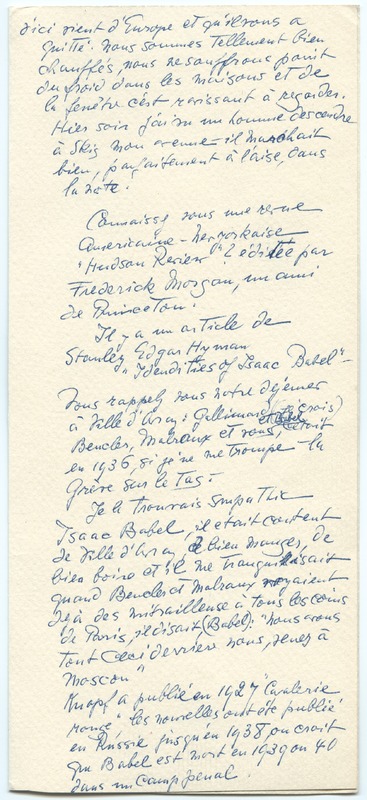 d'ici vient d'Europe et qu'il vous a
quitté. nous sommes tellement bien
chauffés, nous ne souffrons point
du froid dans les maisons et de
la fenêtre c'est ravissant à regarder.
Hier soir j'ai vu un homme descendre
à skis mon avenue – il marchait
bien, parfaitement à l'aise, dans
la note.
Connaissez vous une revue
Américaine – new yorkaise
"Hudson Review" éditée par
Frederick Morgan, un ami
de Princeton.
Il y a un article de
Stanley Edgar Hyman
"Identities of Isaac Babel" –
Vous rappelez vous notre déjeuner
à Ville d'Avray: Gallimard (je crois)
Beucler, Malraux et vous, et Babel c'était
en 1936, si je ne me trompe – la
Grève sur le Tas –
Je le trouvais sympathique
Isaac Babel, il était content
de Ville d'Avray, de bien manger, de
bien boire et il me tranquillisait
quand Beucler et Malraux voyaient
déjà des mitrailleuse à tous les coins
de Paris, il disait (Babel): "nous avons
tout ceci derrière nous, venez à
Moscou"
Knopf a publié en 1927 "Cavalerie
rouge" les nouvelles ont été publié
en Russie jusqu'en 1938, on croit
que Babel est mort en 1939 ou 40
dans un camp penal.